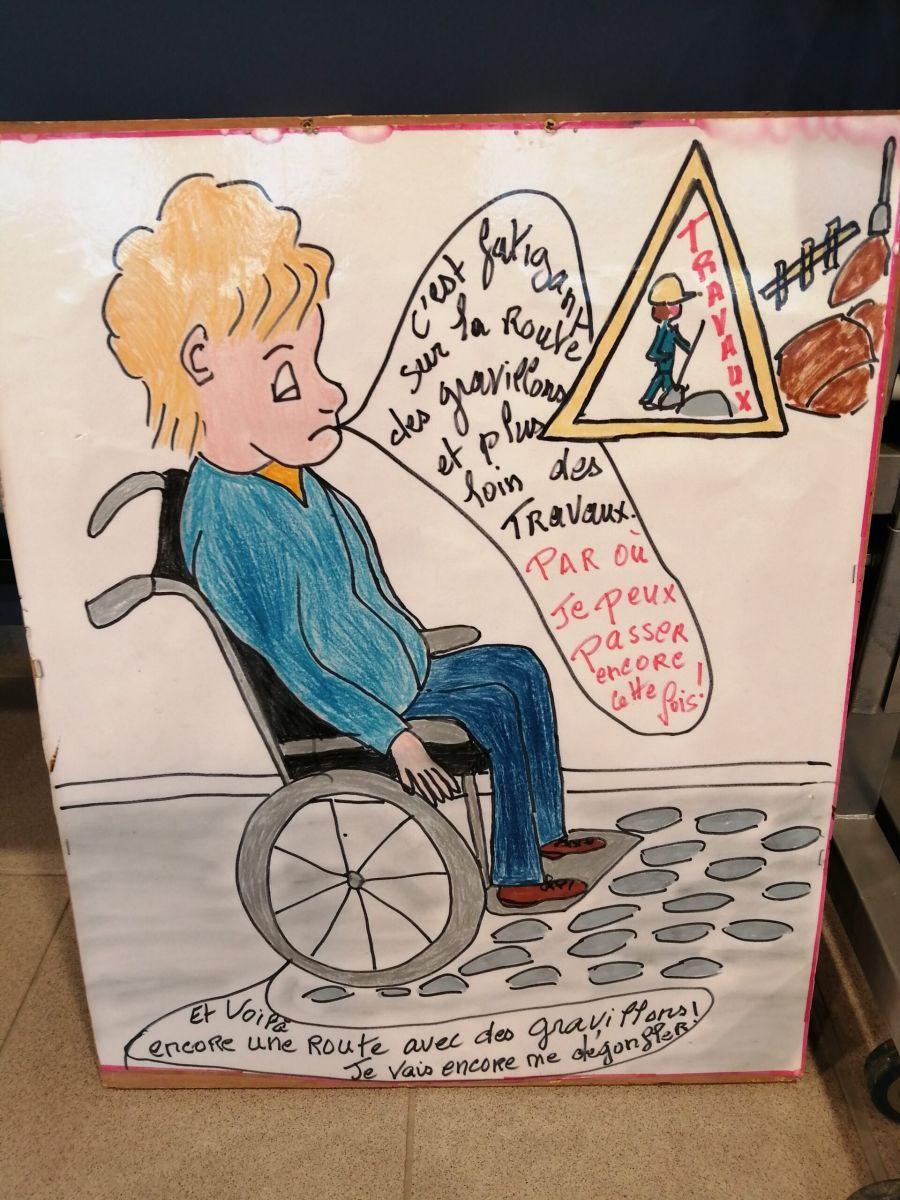 c'est fatigant
sur la Route
des gravillons
et plus
loin des
TRavaux.
PAR OÙ
Je peux
Passer
encore
cette
fois!
TRAVAUX
Et Voilà
encore une Route avec des gravillons!
Je vais encore me dégonfler.